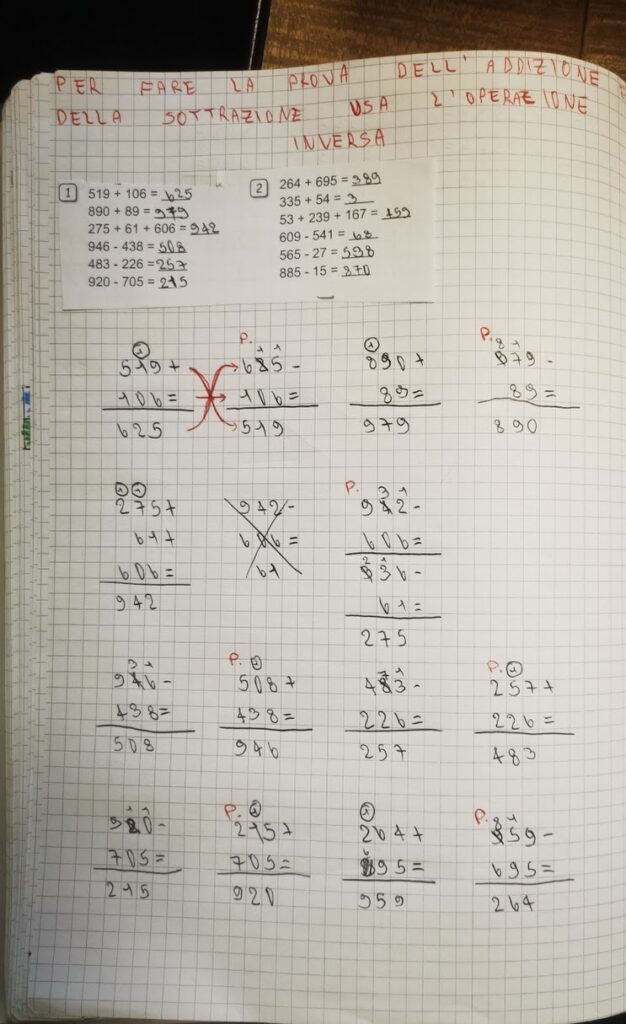 PER FARE LA PROVA DELL'ADDIZIONE E
DELLA SOTTRAZIONE USA L'OPERAZIONE
INVERSA
1
519 + 106 = 625
890 + 89 = 979
275 + 61 + 606 = 942
946 - 438 = 508
483 - 226 = 257
920 - 705 = 215
2
264 + 695 =
335 + 54 = 3
53 + 239 + 167 = 459
609 - 541 = 68
565 - 27 = 538
885 - 15 = 870
1
519+
106=
625
P.
1 1
625-
106=
519
1
890+
89=
979
P.
8 1
979-
89=
890
1 1
275+
61+
606=
942
942-
606=
61
P.
3 1
942-
606=
2 1
336-
61=
275
3 1
946-
438=
508
P. 1
508+
438=
946
7 1
483-
226=
257
P. 1
257+
226=
483
1 1
920-
705=
215
P. 1
215+
705=
920
1
264+
695=
959
P. 8 1
959-
695=
264